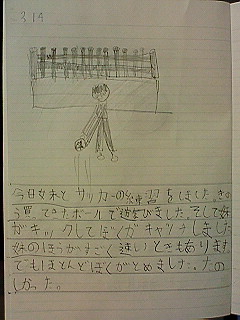 3 14
今日妹とサッカーの練習をしました。きの
う買ってきたボールで遊びました。そして妹
がキックしてぼくがキャッチしました
妹のほうがすごく速いときもあります
でもほとんどぼくがとめました。たの
しかった。